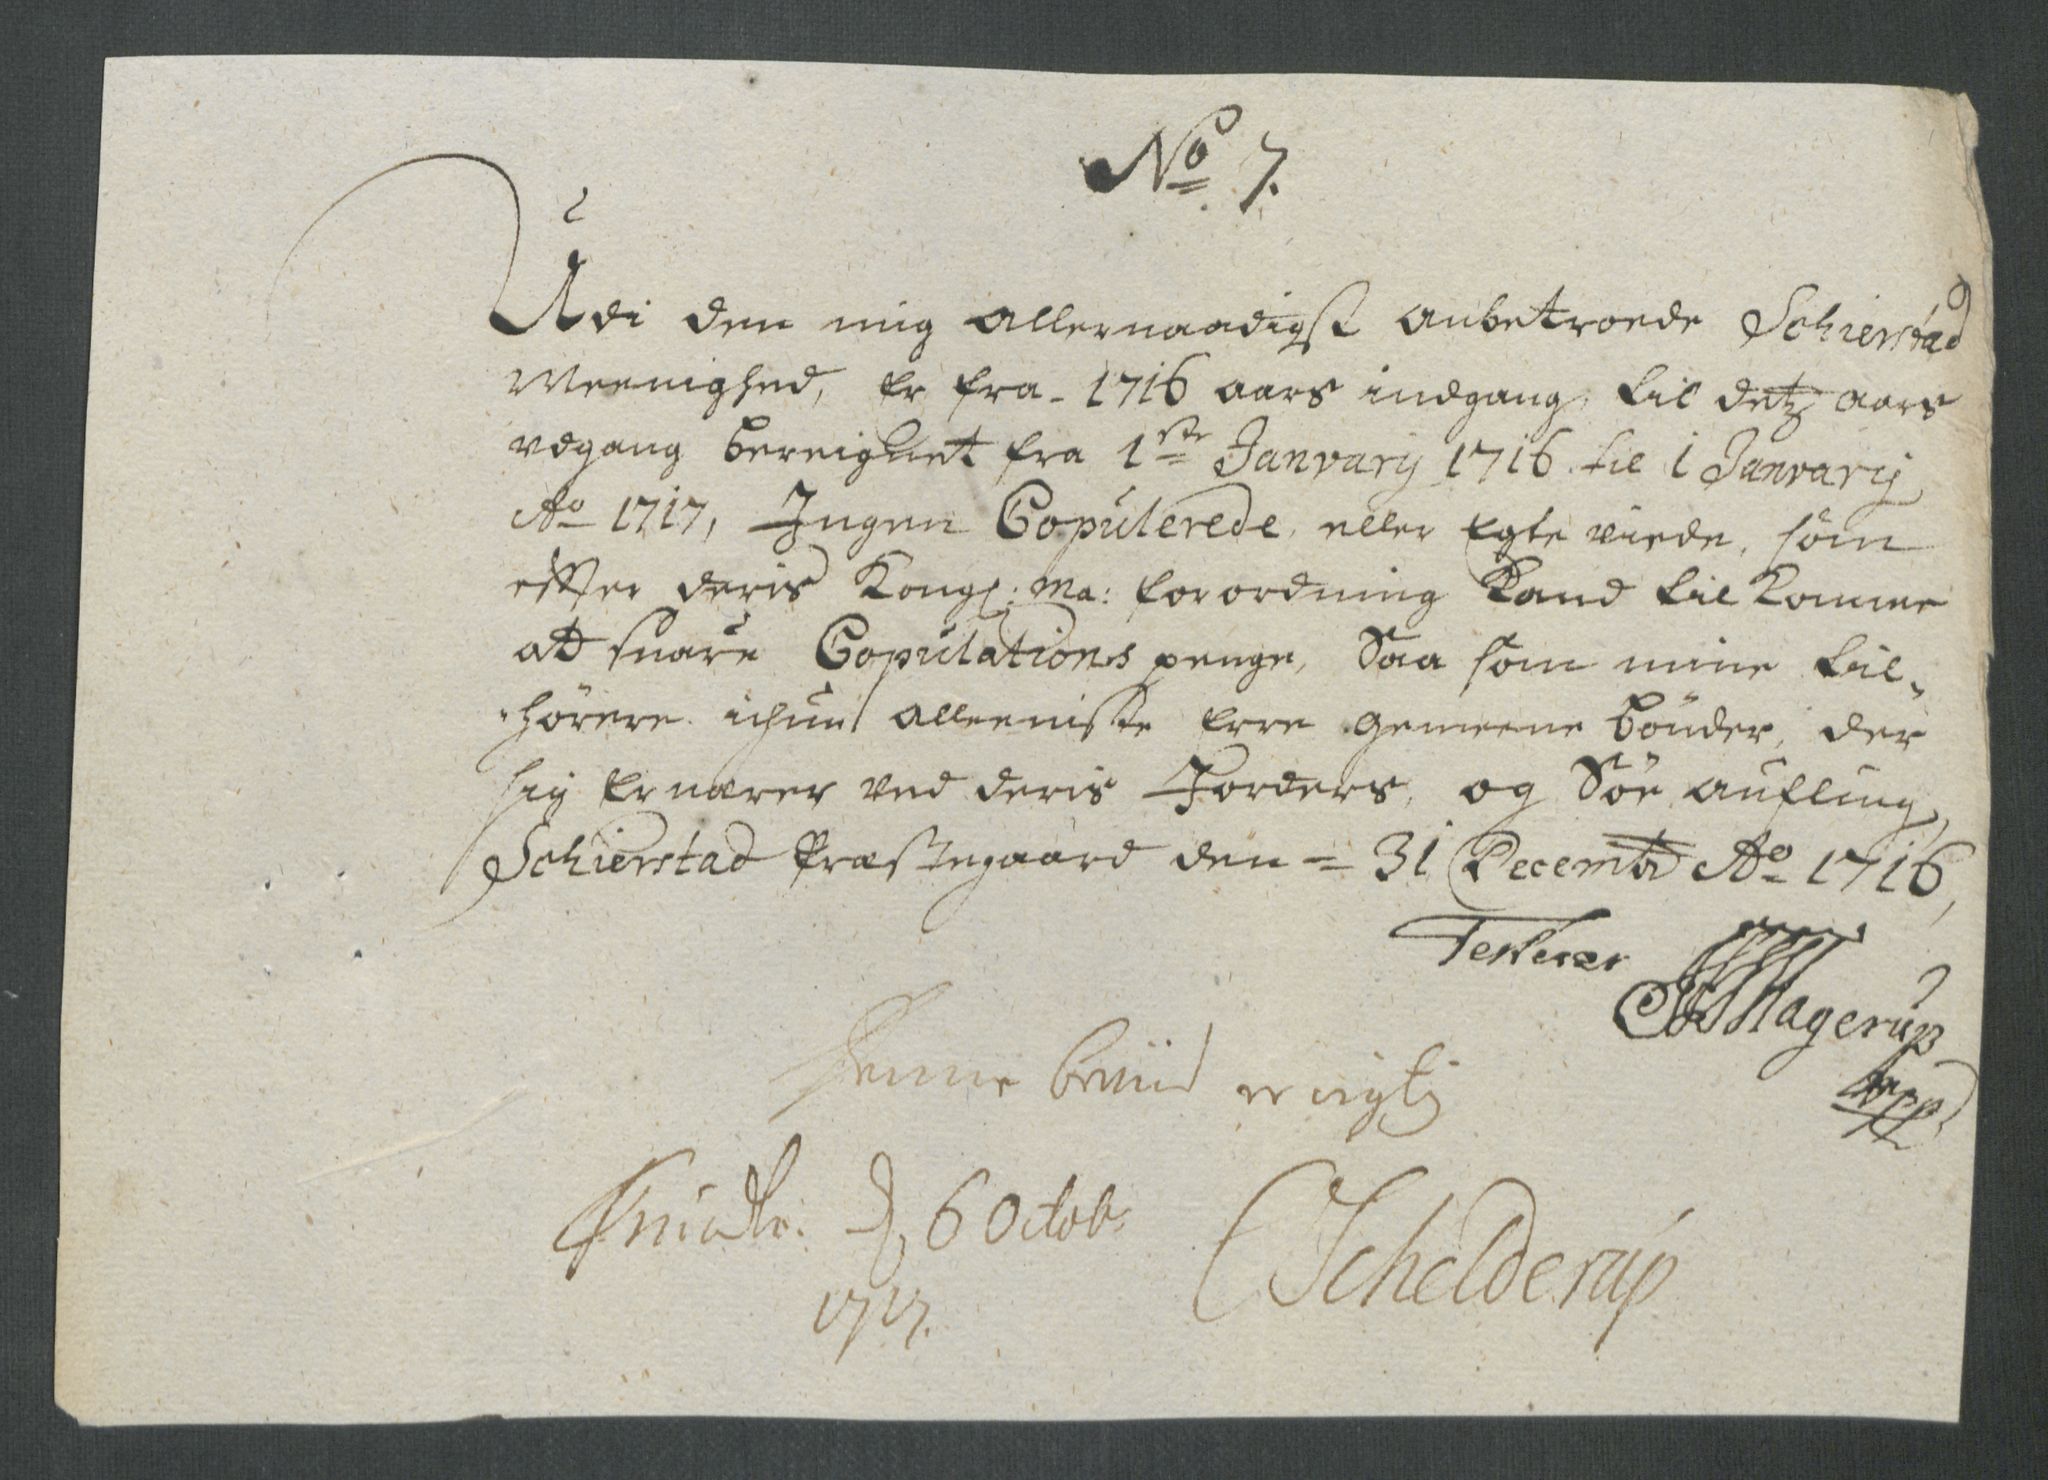 No 7.
Udi den mig allernaadigst anbetroede Schierstad
Meenighed, er fra 1716 aars indgang, til detz aars
udgang bereignet fra 1ste Janvarij 1716 til 1 Janvarij
Ao 1717, Ingen Copulerede, eller Egte viede, som
efter deris Kongl: Ma: forordning kand tilkomme
at svare Copulations penge, Saa som mine til-
hörere ichun alleeniste erre gemeene bönder, der
sig ernærer ved deris Jorders, og Söe aufling,
Schierstad Præstegaard den 31 Decembr Ao 1716,
Testerer
Hagerup
mpp
Denne beviis er rigtig
d 6 Octob:
1717.
Schelderup